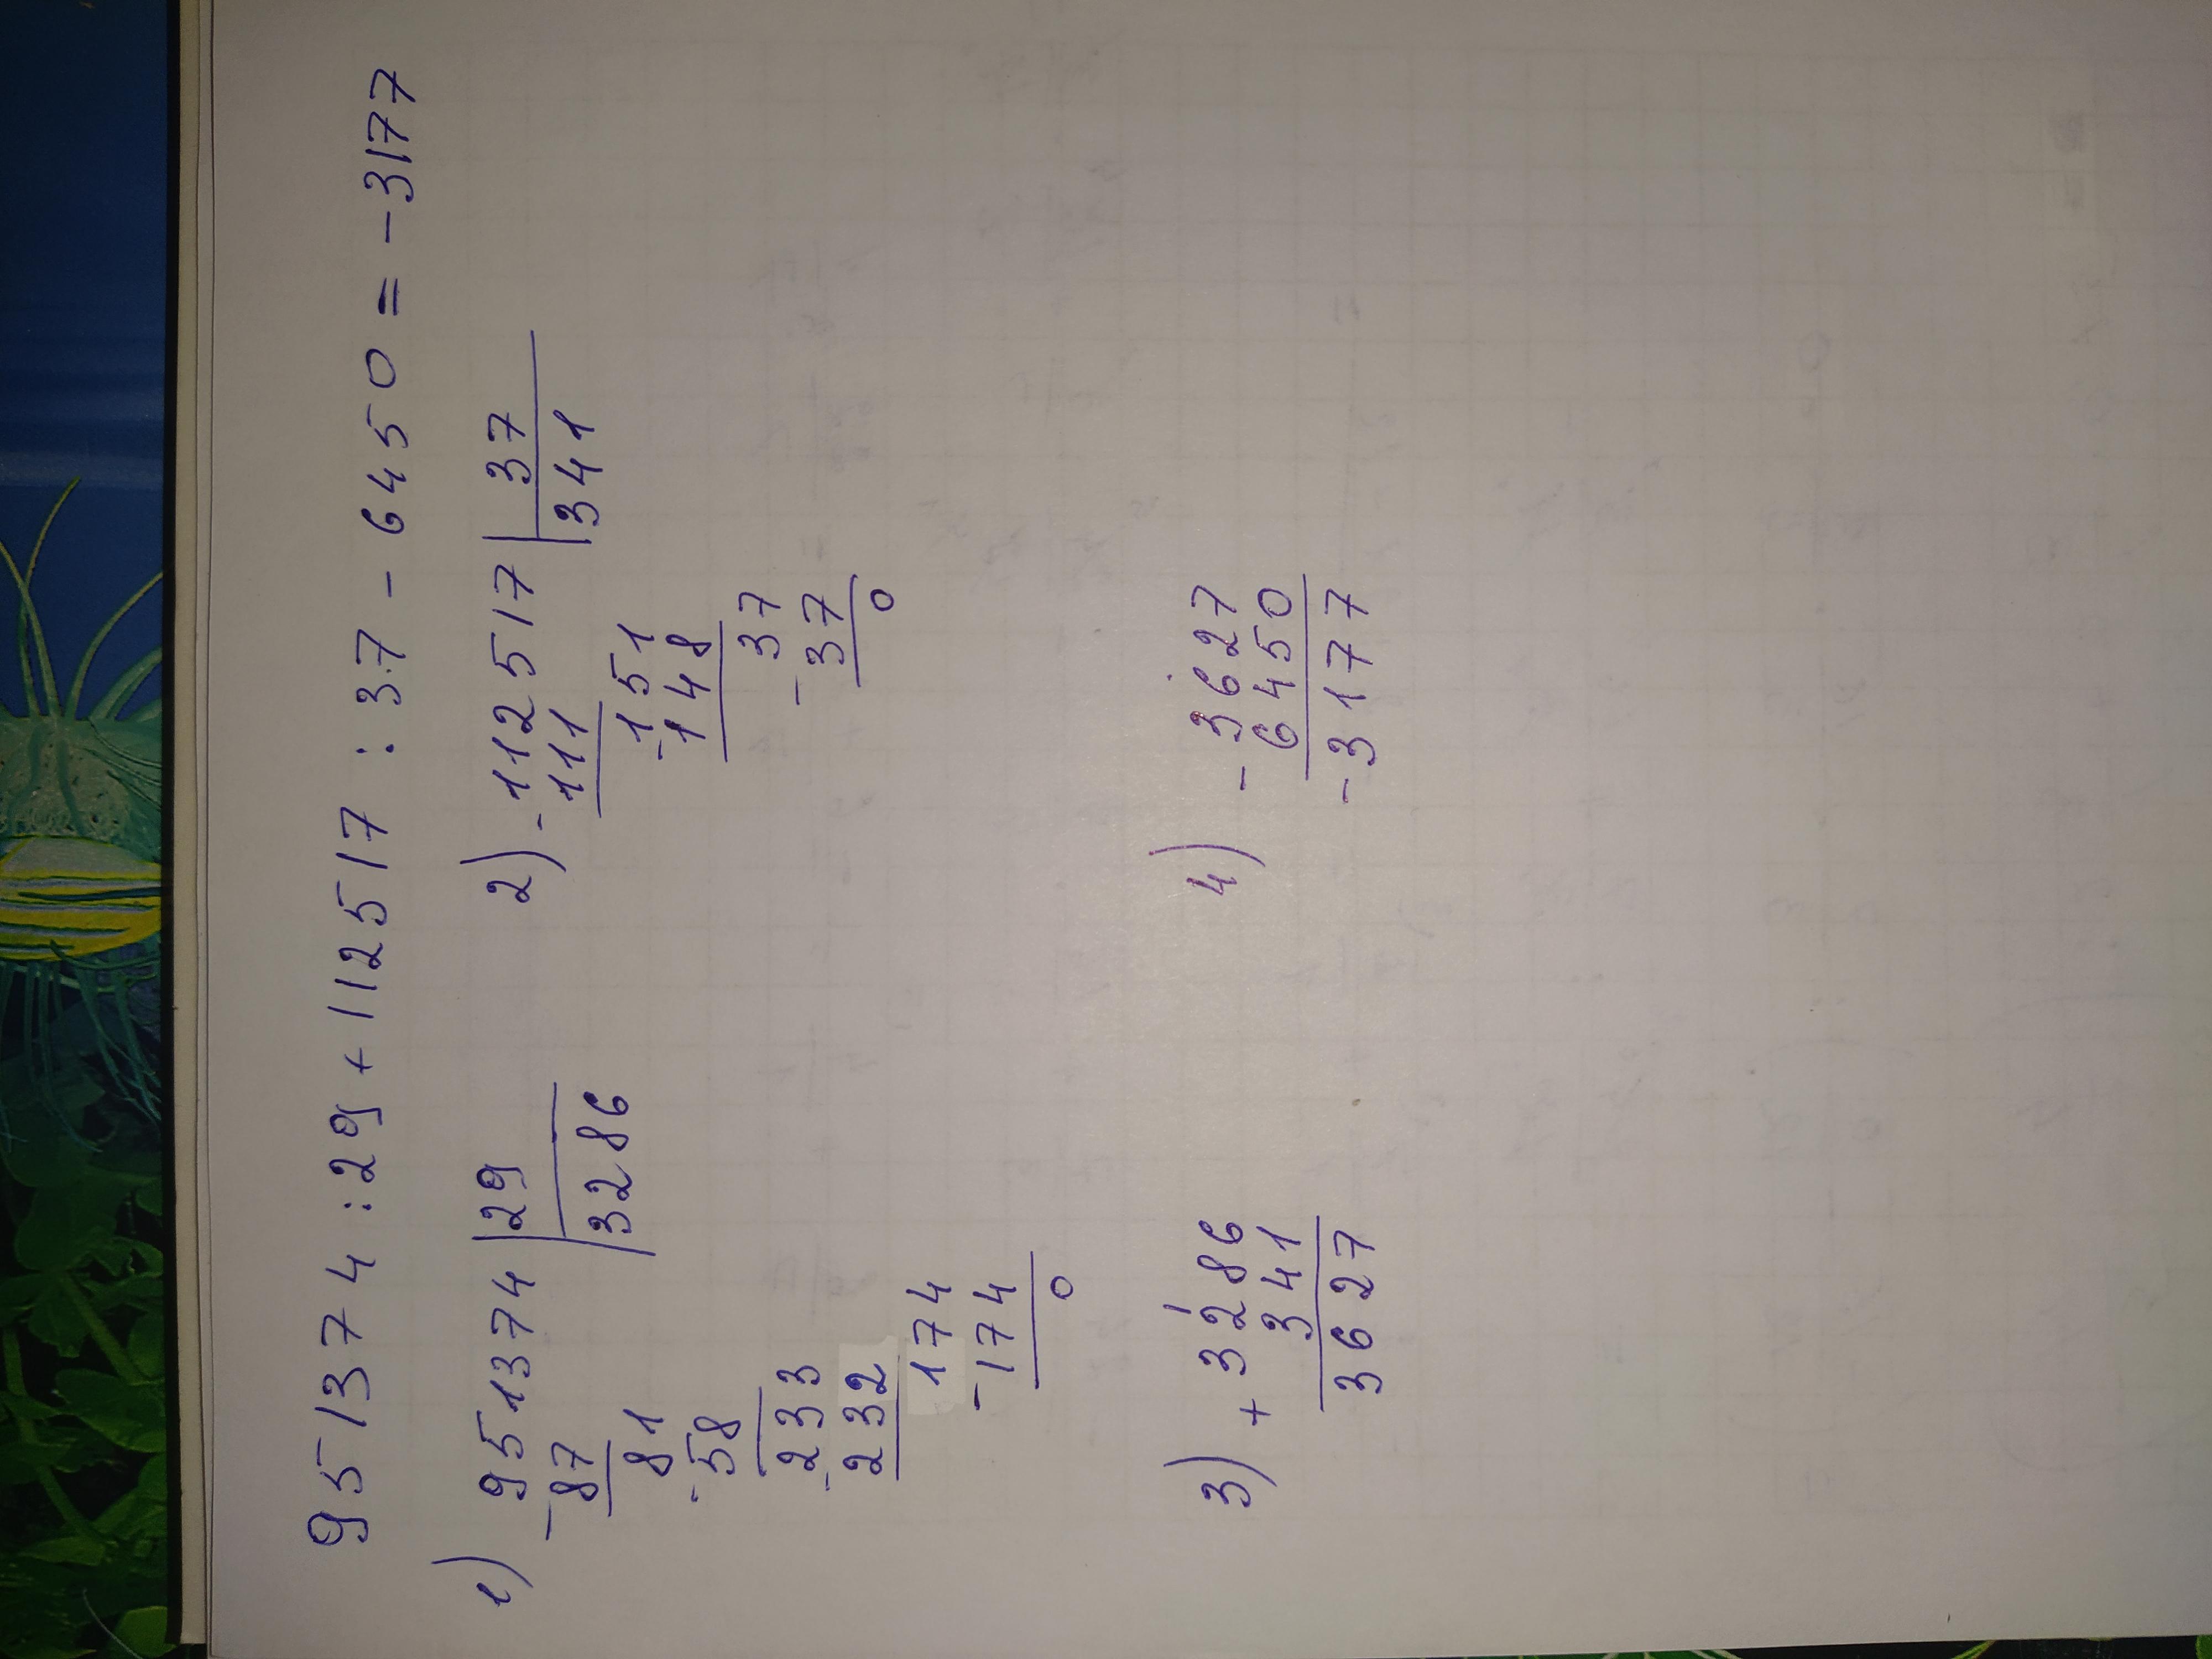 951374 : 29 + 112517 : 37 - 6450 = -3177
1) - 951374 | 29
87 | 3286
81
- 58
- 233
232
174
- 174
0
2) - 112517 | 37
111 | 341
- 151
148
37
- 37
0
3) + 3286
1
341
3627
4) - 3627
6450
- 3177